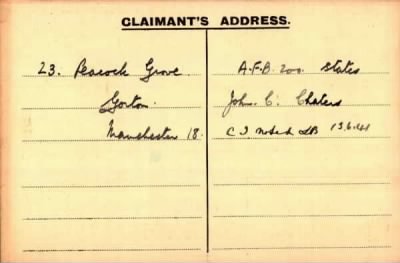 CLAIMANT'S ADDRESS.
23. Peacock Grove.
Gorton.
Manchester 18.
A.F.B. 200. States
John. C. Chaters
C I noted 13.6.41